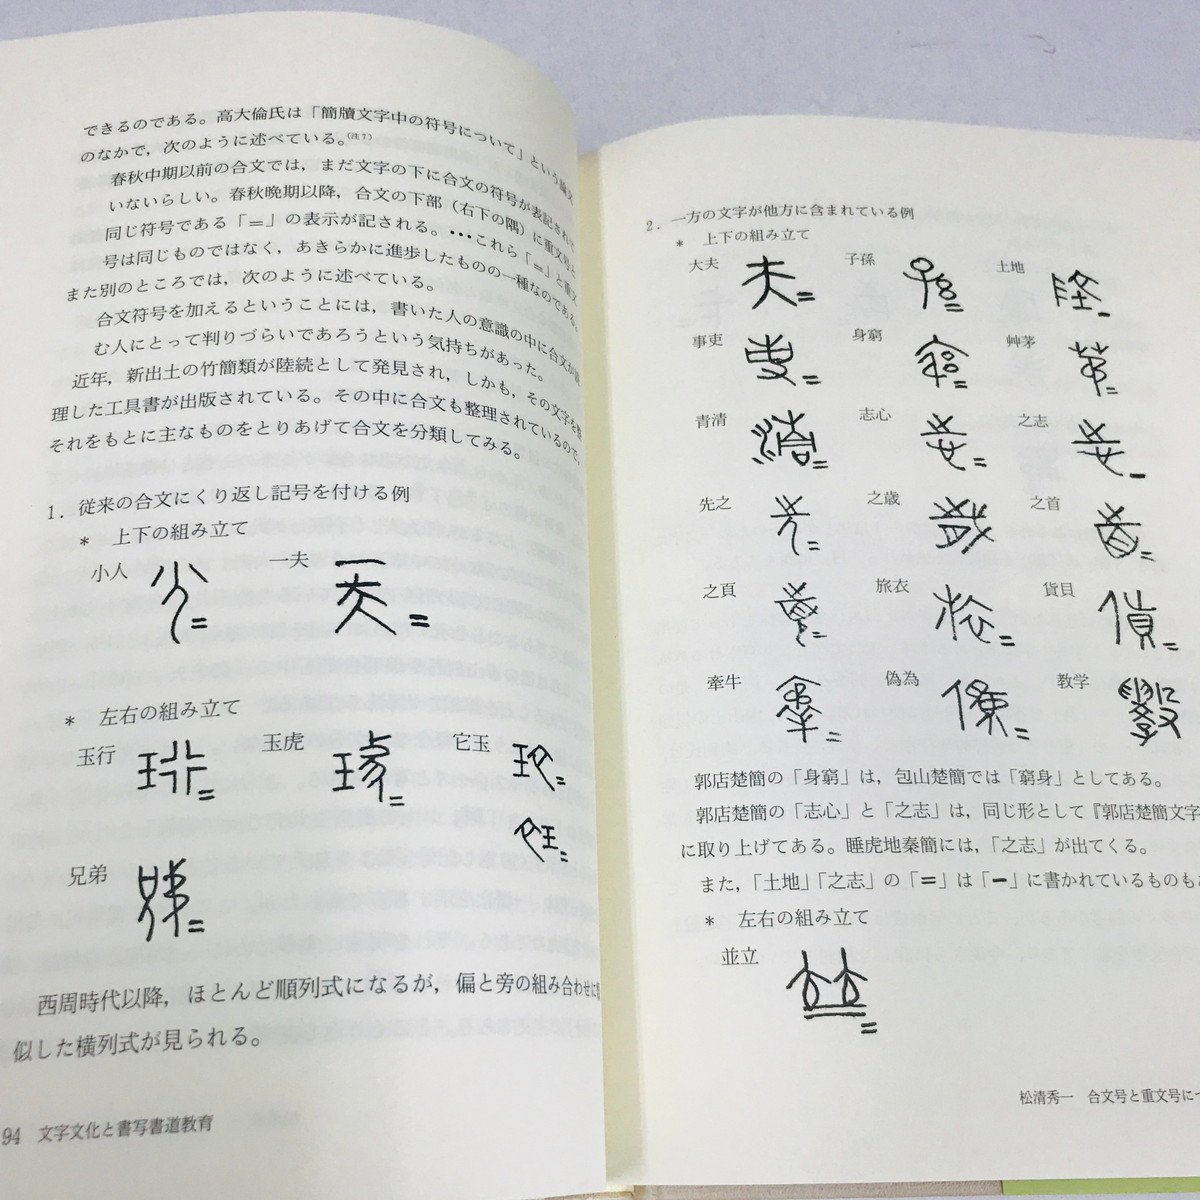 できるのである。高大倫氏は「簡牘文字中の符号について」という論文
のなかで，次のように述べている。(注7)
春秋中期以前の合文では，まだ文字の下に合文の符号が表記されて
いないらしい。春秋晩期以降，合文の下部（右下の隅）に重文号と
同じ符号である「＝」の表示が記される。・・・これら「＝」と重文
号は同じものではなく，あきらかに進歩したものの一種なのである。
また別のところでは，次のように述べている。
合文符号を加えるということには，書いた人の意識の中に合文が読
む人にとって判りづらいであろうという気持ちがあった。
近年，新出土の竹簡類が陸続として発見され，しかも，その文字を整
理した工具書が出版されている。その中に合文も整理されているので，
それをもとに主なものをとりあげて合文を分類してみる。
1．従来の合文にくり返し記号を付ける例
＊ 上下の組み立て
小人 一夫
＊ 左右の組み立て
玉行 玉虎 它玉
兄弟
西周時代以降，ほとんど順列式になるが，偏と旁の組み合わせに
似した横列式が見られる。
94 文字文化と書写書道教育
2．一方の文字が他方に含まれている例
＊ 上下の組み立て
大夫 子孫 土地
事吏 身窮 艸茅
青清 志心 之志
先之 之歳 之首
之頁 旅衣 貨貝
牽牛 偽為 教学
郭店楚簡の「身窮」は，包山楚簡では「窮身」としてある。
郭店楚簡の「志心」と「之志」は，同じ形として『郭店楚簡文字
に取り上げてある。睡虎地秦簡には，「之志」が出てくる。
また，「土地」「之志」の「＝」は「－」に書かれているものも
＊ 左右の組み立て
並立
松清秀一 合文号と重文号に